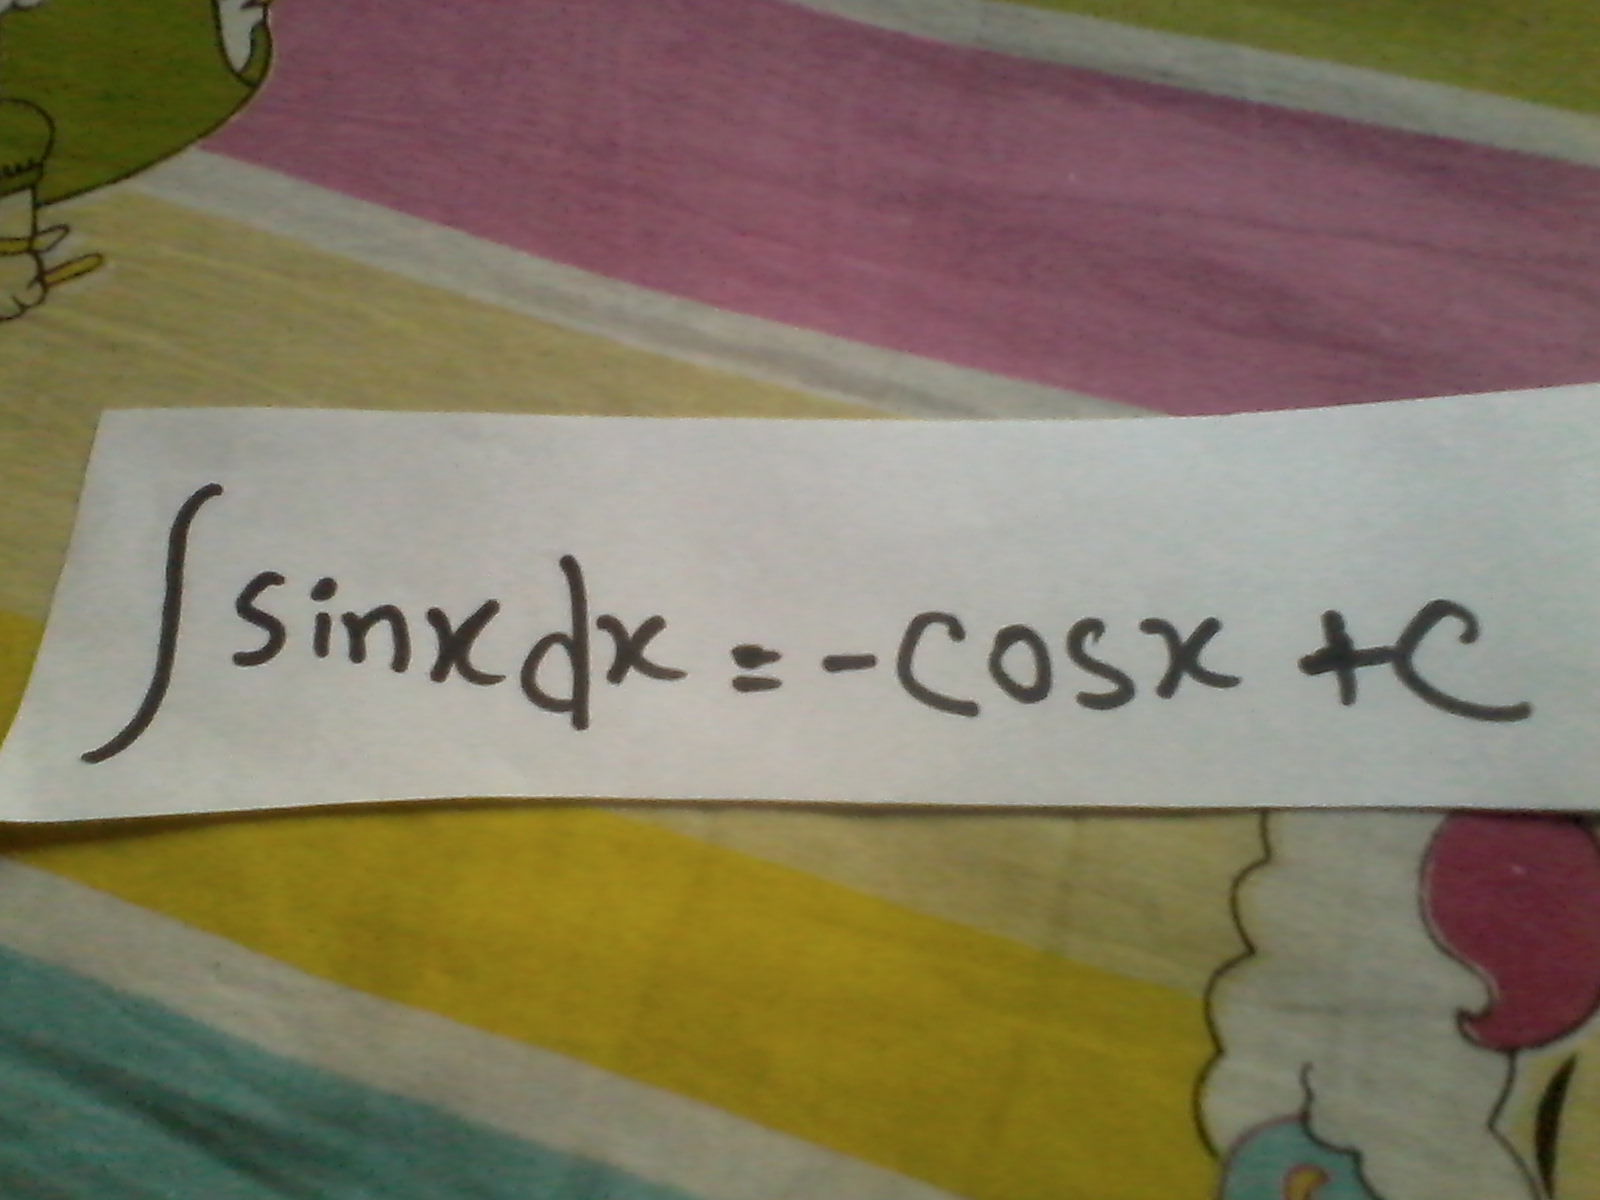 ∫ sinx dx = -cosx + c